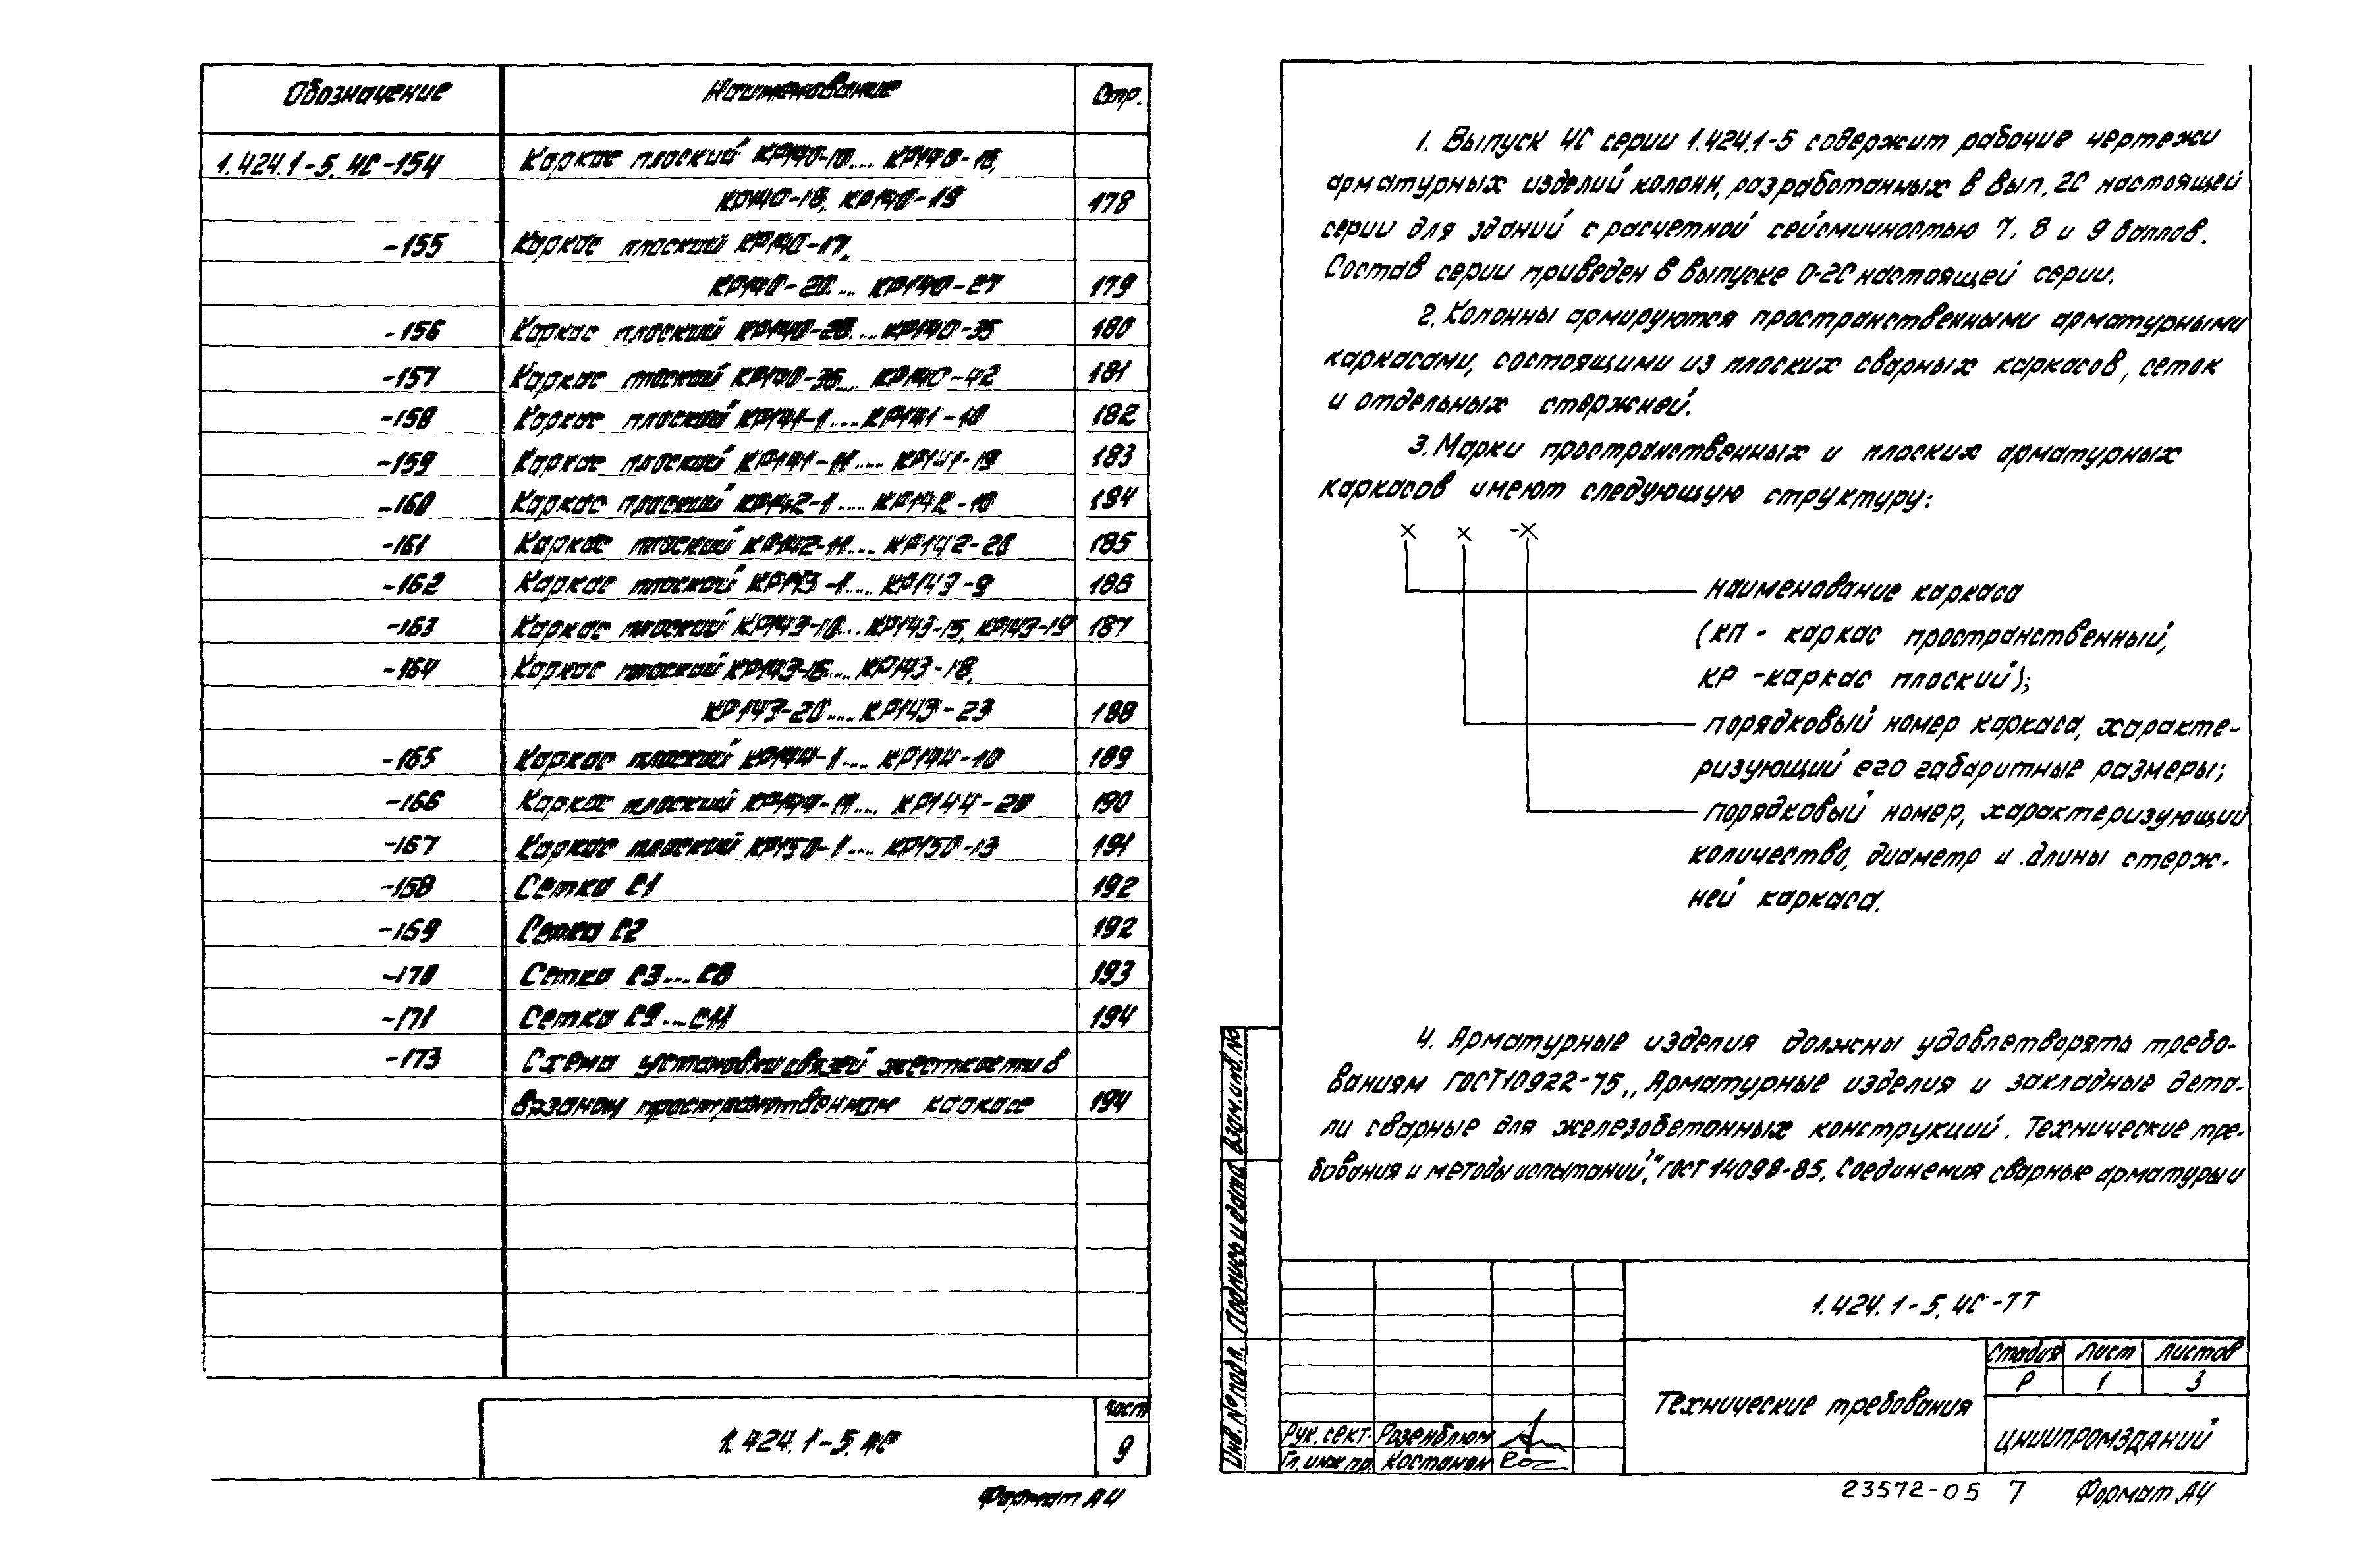 Обозначение Наименование Стр.
1.424.1-5.4С-154 Каркас плоский КР140-10.... КР140-16,
КР140-18, КР140-19 178
-155 Каркас плоский КР140-17,
КР140-20.... КР140-27 179
-156 Каркас плоский КР140-28.... КР140-35 180
-157 Каркас плоский КР140-36.... КР140-42 181
-158 Каркас плоский КР141-1.... КР141-10 182
-159 Каркас плоский КР141-11.... КР141-19 183
-160 Каркас плоский КР142-1.... КР142-10 184
-161 Каркас плоский КР142-11.... КР142-20 185
-162 Каркас плоский КР143-1.... КР143-9 186
-163 Каркас плоский КР143-10... КР143-15, КР143-19 187
-164 Каркас плоский КР143-16.... КР143-18,
КР143-20.... КР143-23 188
-165 Каркас плоский КР144-1.... КР144-10 189
-166 Каркас плоский КР144-11.... КР144-20 190
-167 Каркас плоский КР150-1.... КР150-13 191
-168 Сетка С1 192
-169 Сетка С2 192
-170 Сетка С3.... С8 193
-171 Сетка С9.... С11 194
-173 Схема установки связей жесткости в
вязаном пространственном каркасе 194
1.424.1-5.4С
Лист
9
Формат А4
1. Выпуск 4С серии 1.424.1-5 содержит рабочие чертежи
арматурных изделий колонн, разработанных в вып. 2С настоящей
серии для зданий с расчетной сейсмичностью 7, 8 и 9 баллов.
Состав серии приведен в выпуске 0-2С настоящей серии.
2. Колонны армируются пространственными арматурными
каркасами, состоящими из плоских сварных каркасов, сеток
и отдельных стержней.
3. Марки пространственных и плоских арматурных
каркасов имеют следующую структуру:
х х -х
наименование каркаса
(КП - каркас пространственный,
КР - каркас плоский);
порядковый номер каркаса, характе-
ризующий его габаритные размеры;
порядковый номер, характеризующий
количество, диаметр и длины стерж-
ней каркаса.
4. Арматурные изделия должны удовлетворять требо-
ваниям ГОСТ 10922-75 „Арматурные изделия и закладные дета-
ли сварные для железобетонных конструкций. Технические тре-
бования и методы испытаний", ГОСТ 14098-85. Соединения сварные арматуры и
Инв. № подл. Подпись и дата Взам. инв. №
1.424.1-5.4С-ТТ
Технические требования
Стадия Лист Листов
Р 1 3
ЦНИИПРОМЗДАНИЙ
Рук. сект. Розенблюм
Гл. инж. пр. Костанян
23572-05 7 Формат А4